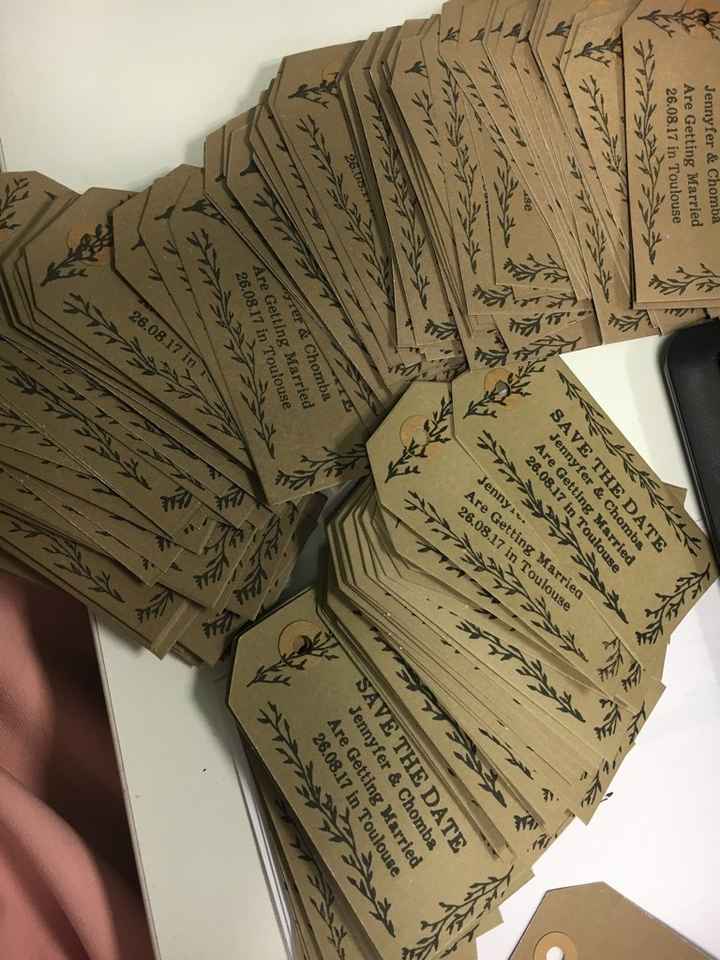 Jennyfer & Chomba
Are Getting Married
26.08.17 in Toulouse
26.08.
se
yfer & Chomba
Are Getting Married
26.08.17 in Toulouse
26.08.17 in
SAVE THE DATE
Jennyfer & Chomba
Are Getting Married
26.08.17 in Toulouse
Jenny
Are Getting Married
26.08.17 in Toulouse
SAVE THE DATE
Jennyfer & Chomba
Are Getting Married
26.08.17 in Toulouse